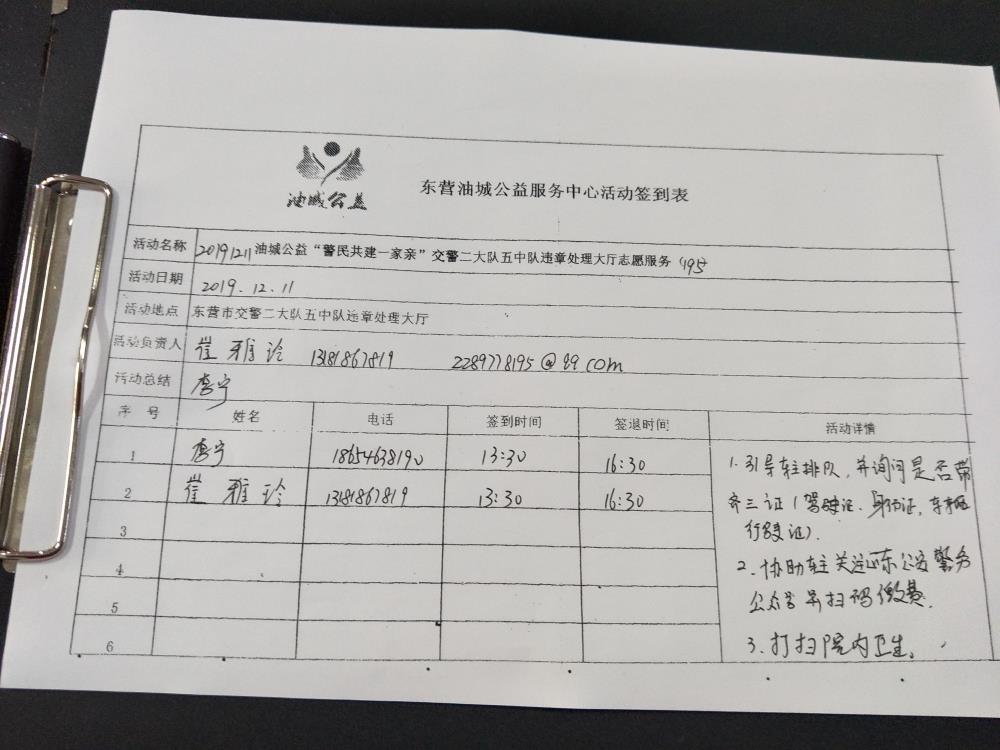 油城公益
东营油城公益服务中心活动签到表
活动名称 20191211油城公益“警民共建一家亲”交警二大队五中队违章处理大厅志愿服务 495
活动日期 2019.12.11
活动地点 东营市交警二大队五中队违章处理大厅
活动负责人 崔雅玲 13181867819 2289778195@qq.com
活动总结 李宁
序号 姓名 电话 签到时间 签退时间 活动详情
1 李宁 18654638190 13:30 16:30
2 崔雅玲 13181867819 13:30 16:30
3
4
5
6
1.引导车主排队,并询问是否带
齐三证(驾驶证、身份证,车辆
行驶证).
2.协助车主关注山东公安警务
公众号并扫码缴费.
3.打扫院内卫生。